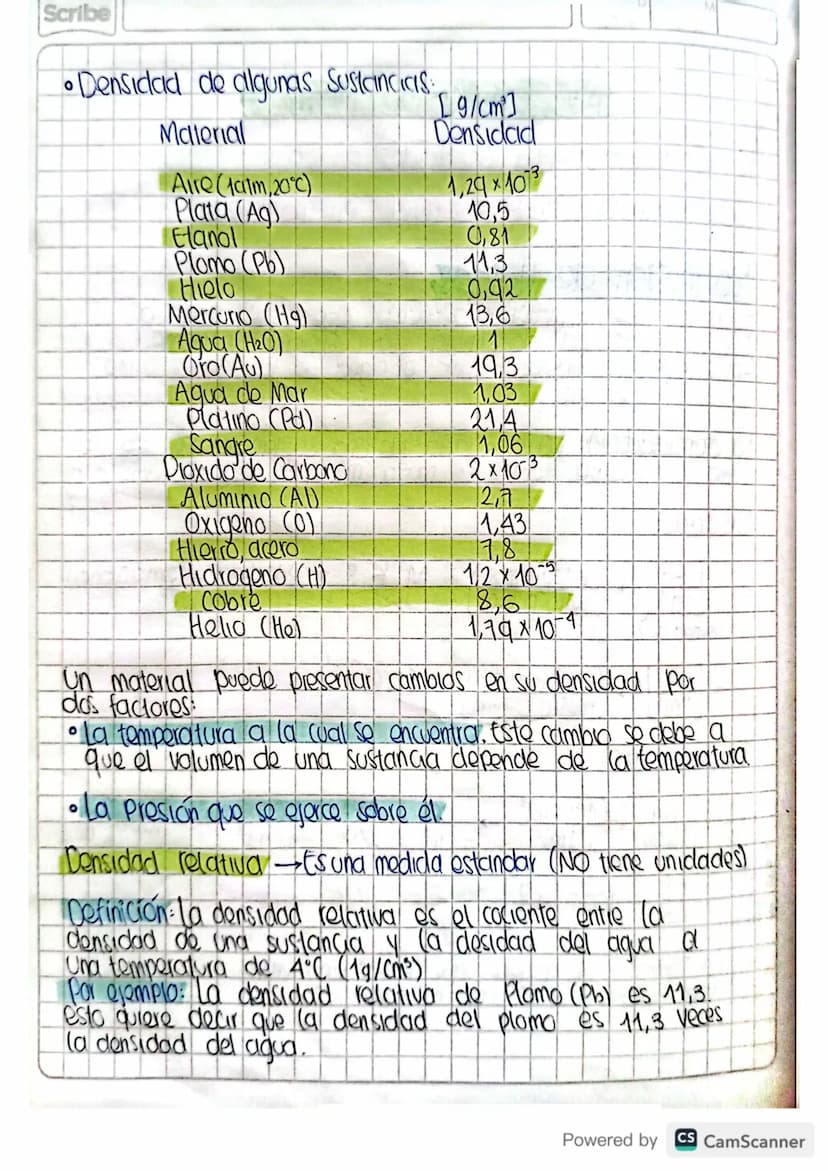 Scribe
• Densidad de algunas sustancias.
[g/cm³]
Material Densidad
Aire (1atm, 20°C) 1,29 x 10⁻³
Plata (Ag) 10,5
Etanol 0,81
Plomo (Pb) 11,3
Hielo 0,92
Mercurio (Hg) 13,6
Agua (H₂O) 1
Oro (Au) 19,3
Agua de Mar 1,03
Platino (Pd) 21,4
Sangre 1,06
Dioxido de Carbono 2 x 10⁻³
Aluminio (Al) 2,7
Oxigeno (O) 1,43
Hierro, acero 7,8
Hidrogeno (H) 1,2 x 10⁻⁵
Cobre 8,6
Helio (He) 1,79 x 10⁻⁴
Un material puede presentar cambios en su densidad por
dos factores:
• La temperatura a la cual se encuentra. Este cambio se debe a
que el volumen de una sustancia depende de la temperatura.
• La Presión que se ejerce sobre él.
Densidad relativa → Es una medida estandar (NO tiene unidades)
Definición: La densidad relativa es el cociente entre la
densidad de una sustancia y la desidad del agua a
una temperatura de 4°C (1g/cm³)
Por ejemplo: La densidad relativa de Plomo (Pb) es 11,3.
esto quiere decir que la densidad del plomo es 11,3 veces
la densidad del agua.
Powered by CS CamScanner